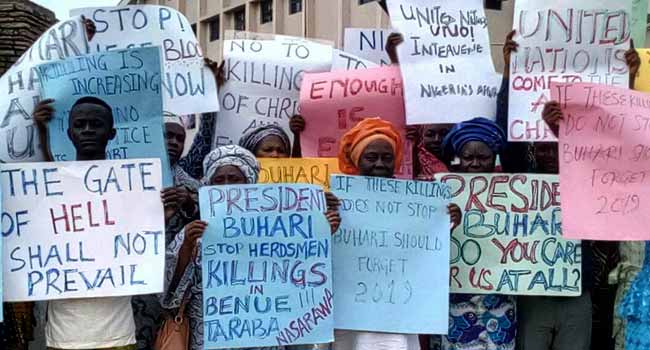 STOP!
BLOO
NOW
UNITED NATIONS
UNO!
INTERVENE
IN
NIGERIA'S
UNITED
NATIONS
COME TO
NO TO
KILLING
OF CHR
ENOUGH
IS
KILLING IS
INCREASING
BUHARI
IF THESE KILLING
DO NOT STOP
BUHARI
FORGET
2019
THE GATE
OF HELL
SHALL NOT
PREVAIL
PRESIDENT
BUHARI
STOP HERDSMEN
KILLINGS
IN
BENUE !!!
TARABA
NASARAWA
IF THESE KILLINGS
DOES NOT STOP
BUHARI SHOULD
FORGET
2019
PRESIDE
BUHAR
DO YOU CARE
FOR US AT ALL?